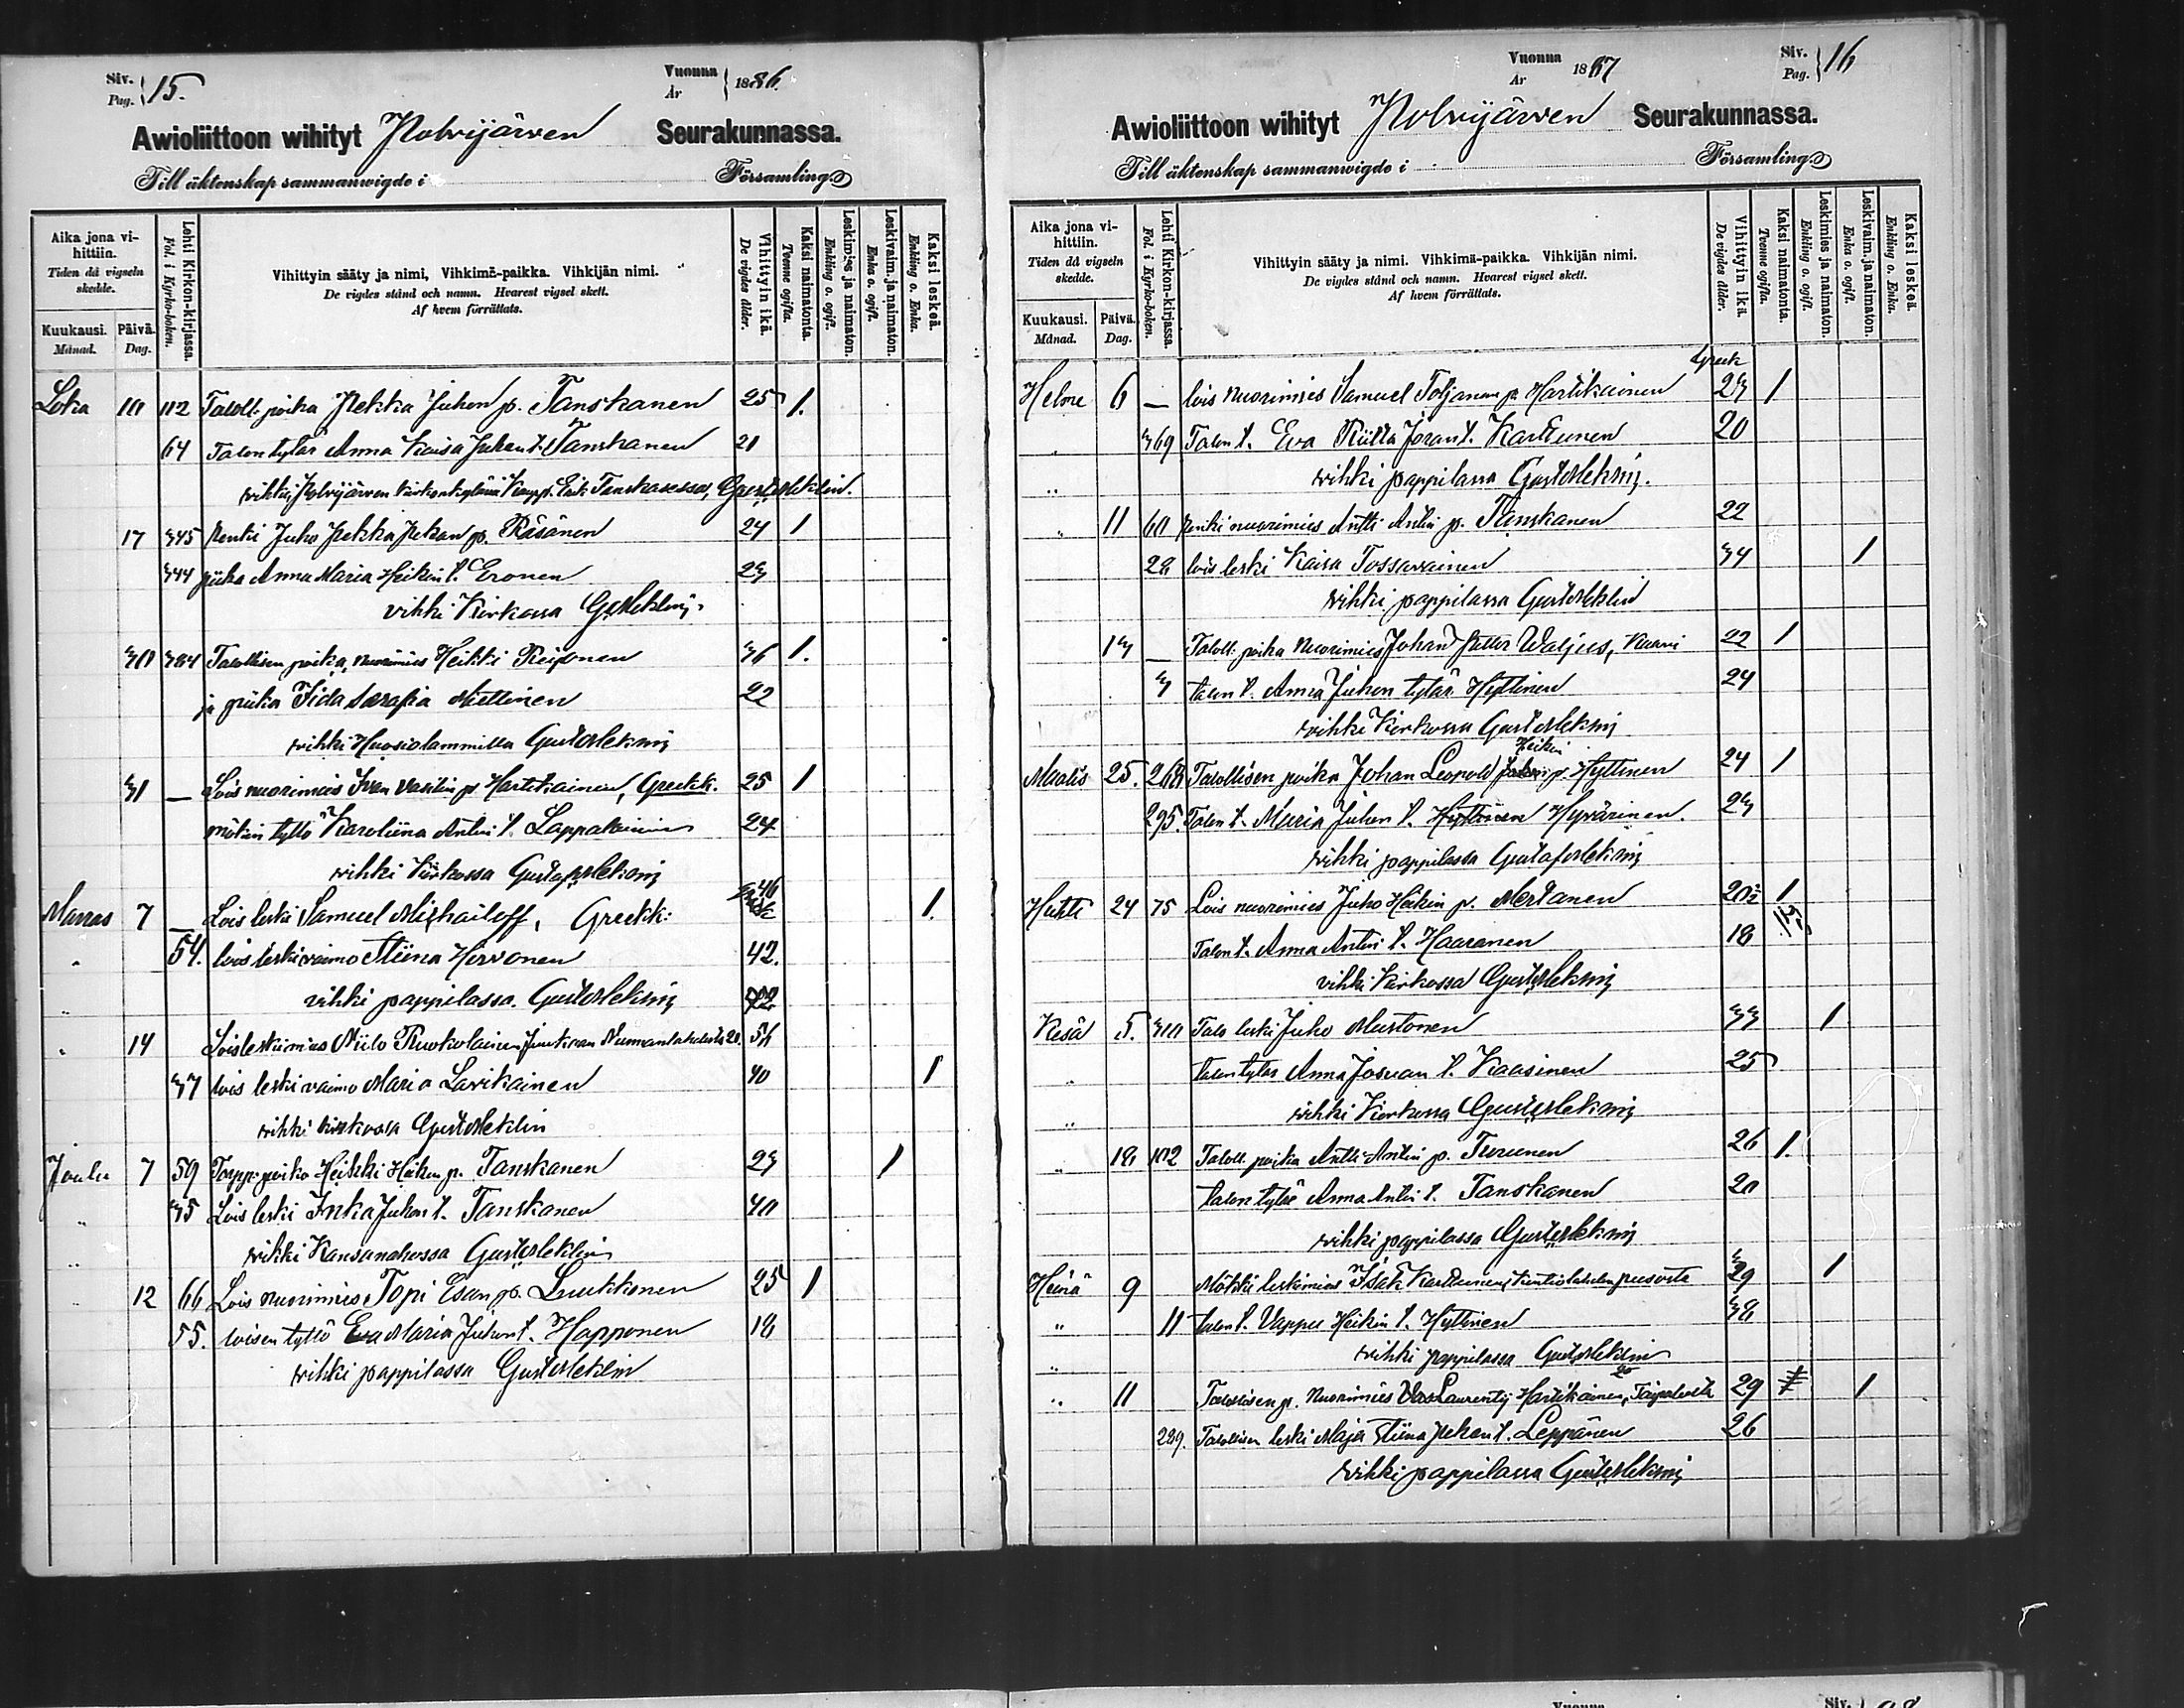 Siv. Pag. 15.
Vuonna År 1886.
Awioliittoon wihityt Polvijärven Seurakunnassa.
Till äktenskap sammanwigde i Församling
Aika jona vihittiin. Tiden då vigseln skedde.
Kuukausi. Månad.
Päivä. Dag.
Lehti Kirkon-kirjassa. Fol. i Kyrko-boken.
Vihittyin sääty ja nimi, Vihkimä-paikka. Vihkijän nimi.
De vigdes stånd och namn. Hvarest vigsel skett.
Af hvem förrättats.
Vihittyin ikä. De vigdes ålder.
Kaksi naimatonta. Tvenne ogifta.
Leskimies ja naimaton. Enkling o. ogift.
Leskivaim. ja naimaton. Enka o. ogift.
Kaksi leskeä. Enkling o. Enka.
Loka 10 112 Taloll. poika Pekka Juhon p. Tanskanen 25 1.
64 Talon tytär Anna Kaisa Juhan t. Tanskanen 21
vihki Polvijärven Kirkonkylässä
17 345 Renki Juho Pekka Pekan p. Räsänen 24 1
344 piika Anna Maria Heikin t. Eronen 23
vihki Kirkossa
30 384 Talollisen poika, nuorimies Heikki Reijonen 36 1.
ja piika Iida Serafia Miettinen 22
vihki Huosiolammilla
31 — Lois nuorimies Ivan Vasilin p. Hartikainen, Greekk. 25 1
mökin tyttö Karoliina Antin t. Lappalainen 24
vihki Kirkossa
Marras 7 — Lois leski Samuel Mihailoff, Greekk: 46 1.
" 54. lois leskivaimo Stiina Hirvonen 42.
" vihki pappilassa.
" 14 Lois leskimies Niilo Ruokolainen Juukaan 56
37 lois leski vaimo Maria Lavikainen 40 1
vihki kirkossa
Joulu 7 59 poika Heikki Heikin p. Tanskanen 23 1
" 35 Lois leski Inka Juhon t. Tanskanen 40
" vihki Kansanahossa
" 12 66 Lois nuorimies Topi Esan p. Luukkonen 25 1
55. loisen tyttö Eva Maria Juhon t. Happonen 18
vihki pappilassa
Vuonna År 1887
Siv. Pag. 16
Awioliittoon wihityt Polvijärven Seurakunnassa.
Till äktenskap sammanwigde i Församling
Aika jona vihittiin. Tiden då vigseln skedde.
Kuukausi. Månad.
Päivä. Dag.
Lehti Kirkon-kirjassa. Fol. i Kyrko-boken.
Vihittyin sääty ja nimi. Vihkimä-paikka. Vihkijän nimi.
De vigdes stånd och namn. Hvarest vigsel skett.
Af hvem förrättats.
Vihittyin ikä. De vigdes ålder.
Kaksi naimatonta. Tvenne ogifta.
Leskimies ja naimaton. Enkling o. ogift.
Leskivaim. ja naimaton. Enka o. ogift.
Kaksi leskeä. Enkling o. Enka.
Greek
Helme 6 — lois nuorimies Samuel p. Hartikainen 23 1
" 369 Talon t. Eva Riitta t. Karttunen 20
" vihki pappilassa
" 11 60 Renki nuorimies Antti Antin p. Tanskanen 22
28 lois leski Kaisa Tossavainen 34 1
vihki pappilassa
13 — Taloll. poika nuorimies Johan Petter Waljus, Kaavi 22 1
3 talon t. Anna Juhon tytär Hyttinen 24
vihki Kirkossa
Maalis 25. 268 Talollisen poika Johan Leopold Heikin p. Hyttinen 24 1
295. Talon t. Maria Juhon t. Hyttinen Hyvärinen. 23
vihki pappilassa
Huhti 24 75 Lois nuorimies Juho Heikin p. Mertanen 20½ 1
Talon t. Anna Antin t. Haaranen 18
vihki Kirkossa
Kesä 5. 310 Talo leski Juho Mustonen 33 1
" talon tytär Anna t. Kaasinen 25
" vihki Kirkossa
" 18 102 Taloll. poika Antti Antin p. Turunen 26 1.
talon tytär Anna Antin t. Tanskanen 20
vihki pappilassa
Heinä 9 Mökki leskimies Isak Karttunen, Kontiolahden 39 1
" 11 talon t. Vappu Heikin t. Hyttinen 38
" vihki pappilassa
" 11 Talollisen p. nuorimies Laurentij Hartikainen, Taipaleelta 29 1
289. Talollisen leski Maja Stiina Pekan t. Leppänen 26
vihki pappilassa
Vuonna
Siv.